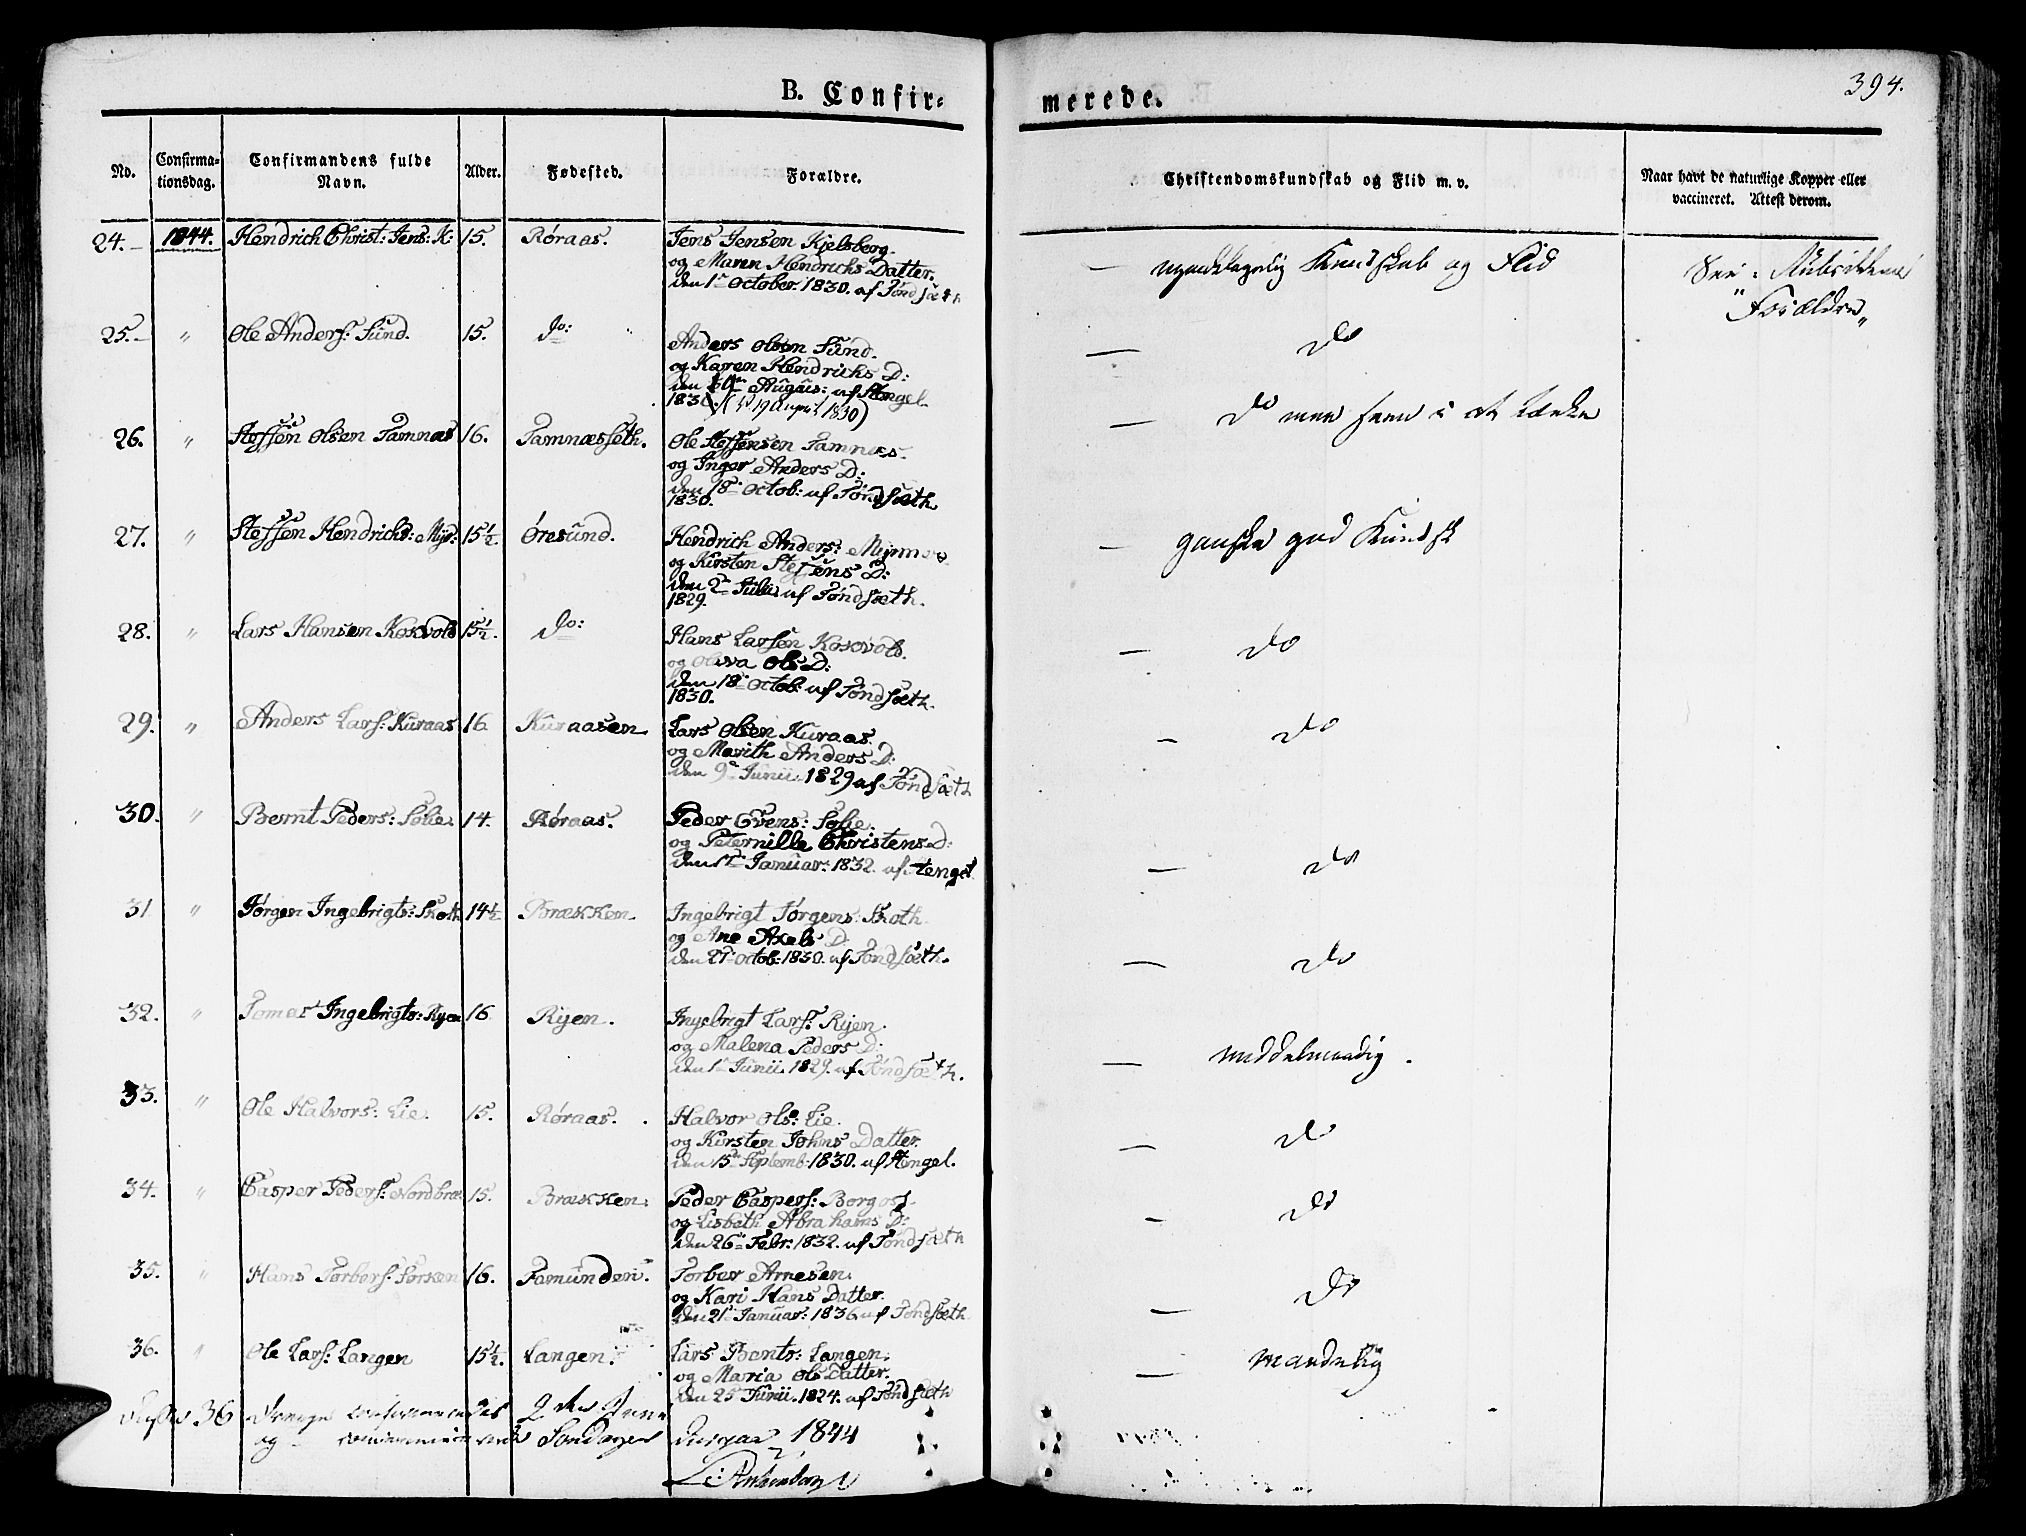 394.
B. Confir=
merede.
No.
Confirma-
tionsdag.
Confirmandens fulde
Navn.
Alder.
Fødested.
Forældre.
Christendomskundskab og Flid m. v.
Naar havt de naturlige Kopper eller
vaccineret. Attest derom.
24.– 1844. Hendrich Christ: Jens: K: 15. Røraas. Jens Jensen Kjelsberg
og Maren Hendrichs Datter.
den 1ste October. 1830. af Tøndsæth
— Kundskab og Flid
See: Rubrikken
"Forældre"
25.– " Ole Anders: Sund. 15. do: Anders Olsen Sund.
og Karen Hendrichs D:
den Augus: af Stengel.
1830 (19 August 1830)
— do
26. " Steffen Olsen Tamnæs 16. Tamnæsseth. Ole Steffensen Tamnæs.
og Inger Anders D:
den 18de Octob: af Tøndsæth
1830.
— do men
27. " Steffen Hendrichs: Myr: 15½. Øresund. Hendrich Anders:
og Kirsten Steffens D:
den 2den af Tøndsæth.
1829.
— ganske god Kundsk
28. " Lars Hansen Kokvold 15½. do: Hans Larsen Kokvold.
og Oliva Ols D:
den 18de Octob: af Tøndsæth.
1830.
— do
29. " Anders Lars: Kuraas 16 Kuraasen Lars Olsen Kuraas.
og Marith Anders D:
den 9de Junii 1829 af Tøndsæth
— do
30. " Bernt Peders: Solie 14. Røraas. Peder Evens: Solie.
og Peternille Christens D:
den 1ste Januar: 1832. af Stengel
— do
31 " Jørgen Ingebrigts: Skoth 14½ Brækken Ingebrigt Jørgens: Skoth
og Ane Axels D.
den 27de Octob: 1830. af Tøndsæth.
— do
32. " Tomas Ingebrigts: Ryen 16. Ryen. Ingebrigt Lars: Ryen.
og Malena Peders D:
den 1ste Junii. 1829. af Tøndsæth.
— middelmaadig.
33. " Ole Halvors: Lie. 15. Røraas. Halvor Ols: Lie.
og Kirsten Johns Datter.
den 15de Septemb: 1830. af Stengel.
— do
34. " Casper Peders: Nordbræ 15. Brækken. Peder Caspers: Borgos
og Lisbeth Abrahams D:
den 26de Febr: 1832. af Tøndsæth
— do
35. " Hans Torbers: Sorken 16. Famunden. Torber Arnesen.
og Kari Hans Datter.
den 21de Januar: af Tøndsæth
— do
36. " Ole Lars: Langen 15½. Langen. Lars Bents: Langen.
og Maria Ols Datter.
den 25 Junii. 1824. af Tøndsæth
— maadelig
36 Drenge confirmeredes 2den
og Søndagen 1844